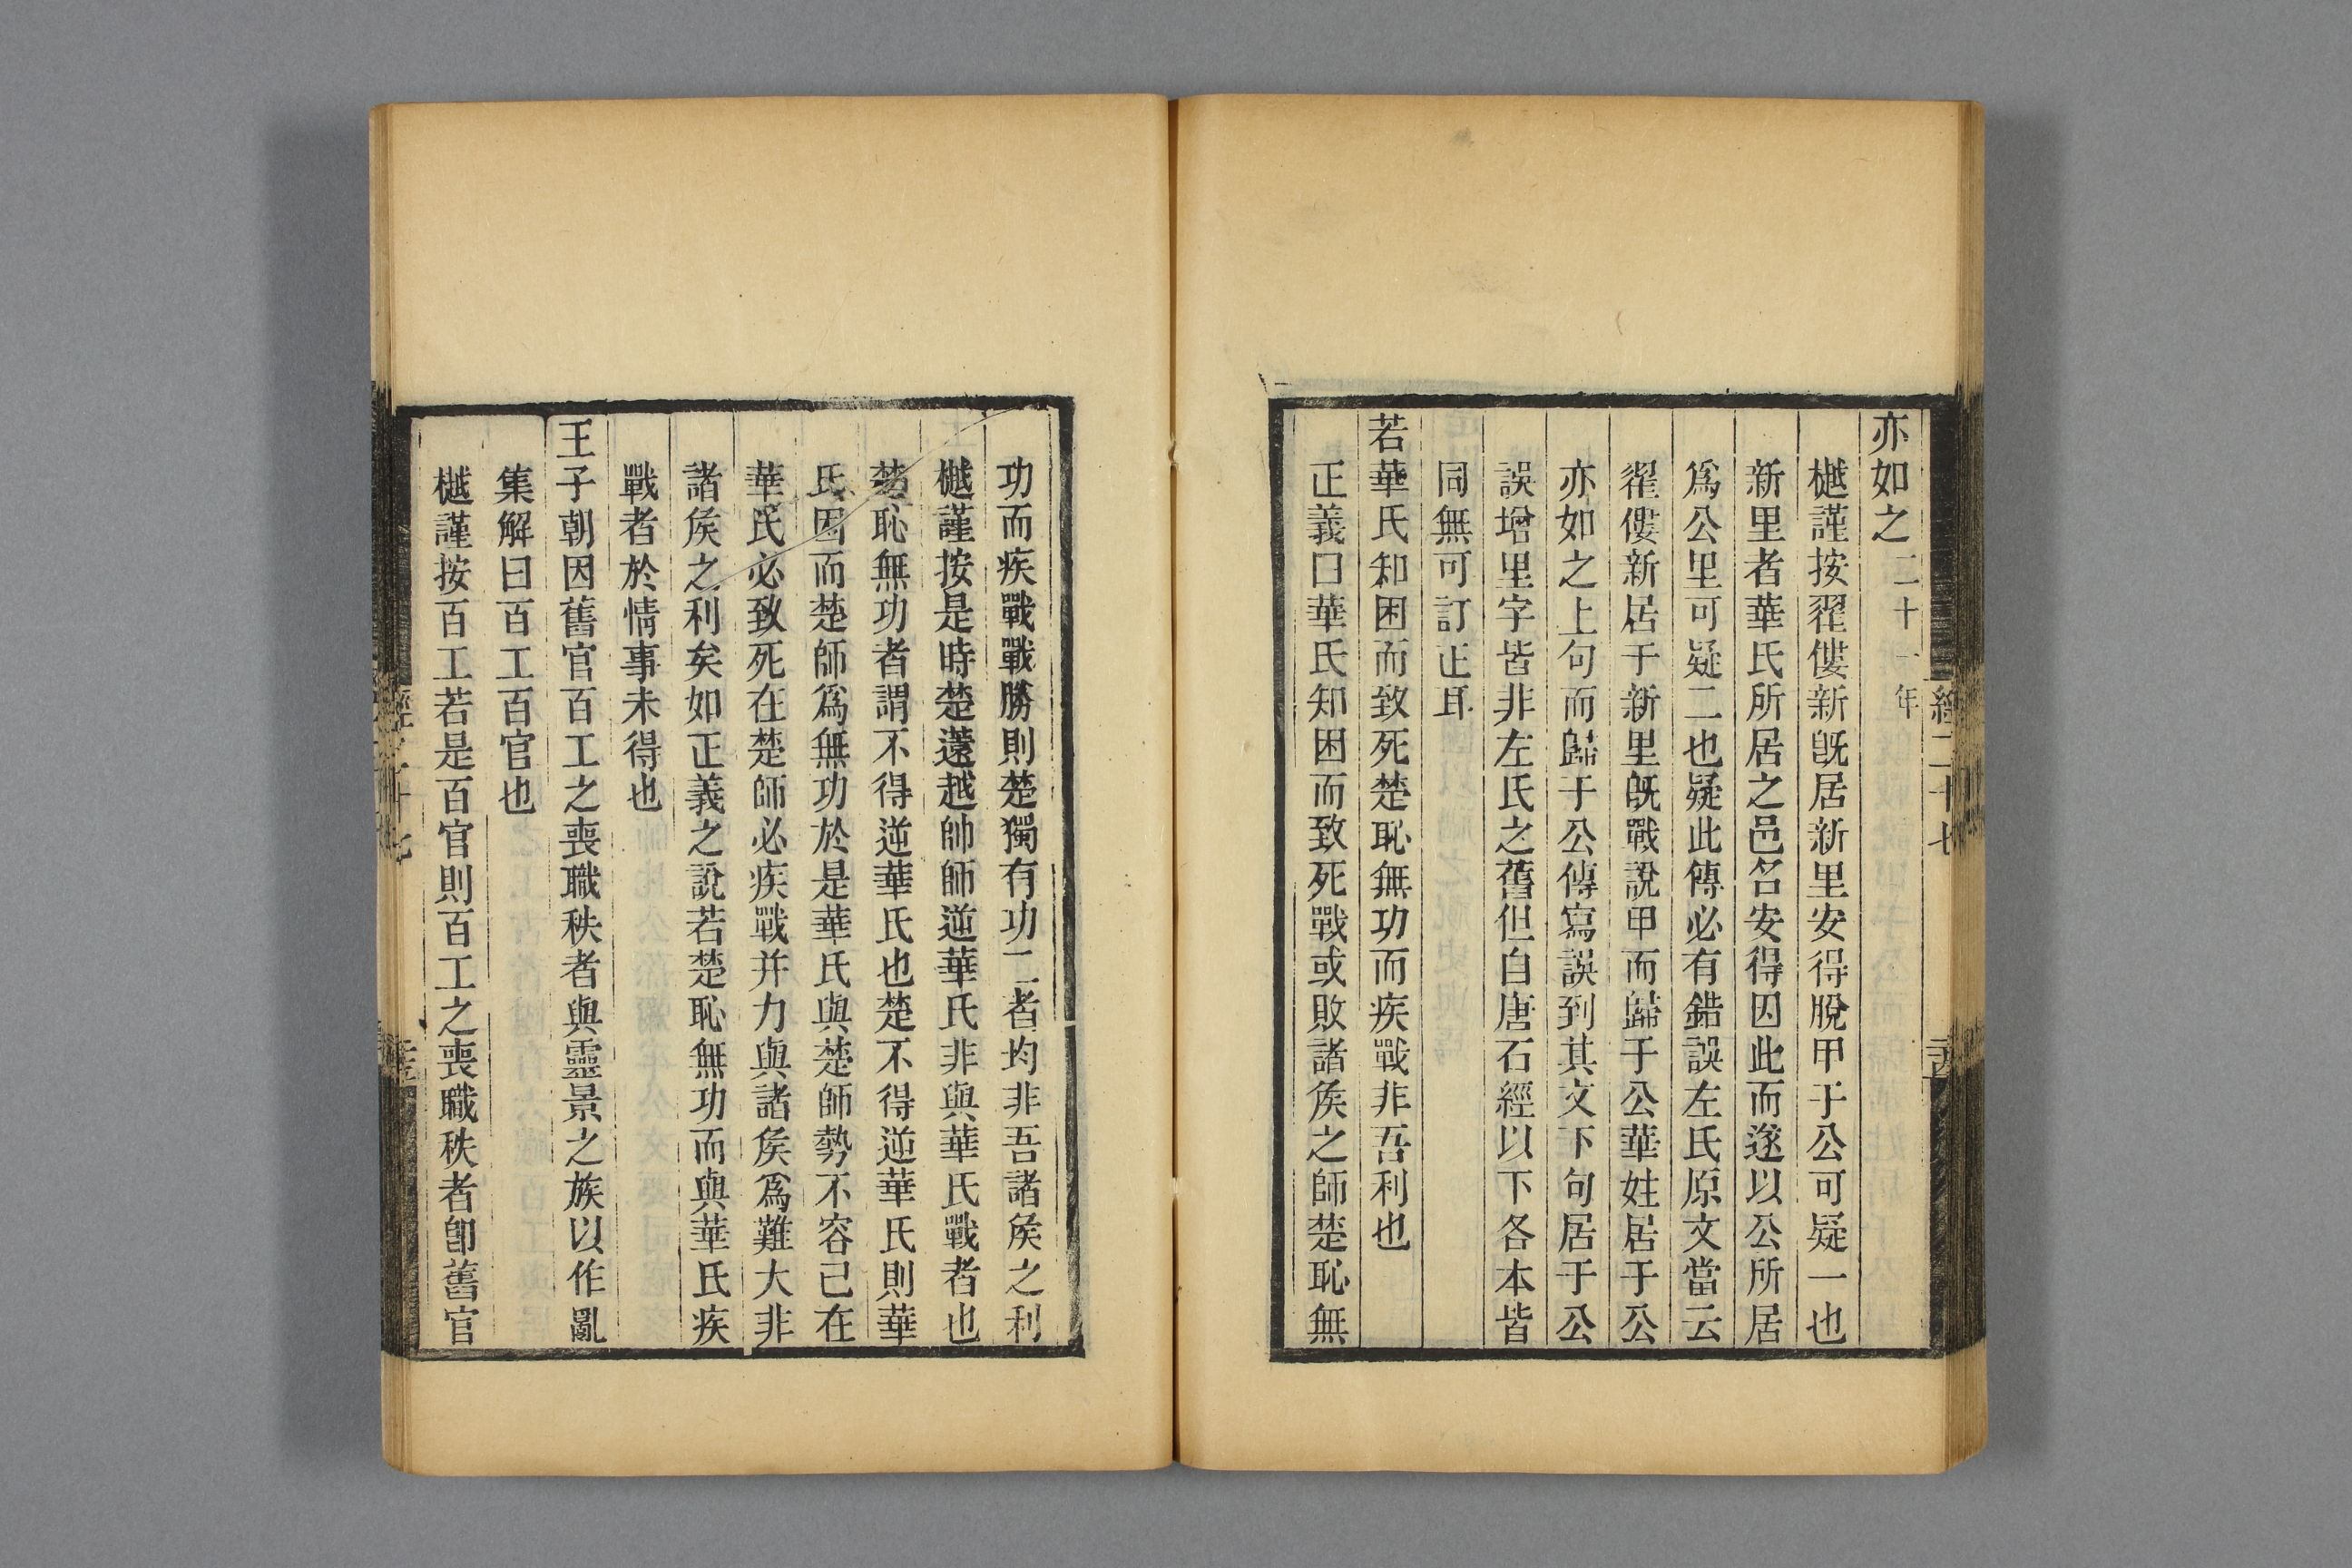 亦如之二十一年
樾謹按翟僂新既居新里安得脫甲于公可疑一也
新里者華氏所居之邑名安得因此而遂以公所居
爲公里可疑二也疑此傳必有錯誤左氏原文當云
翟僂新居于新里既戰說甲而歸于公華妵居于公
亦如之上句而歸于公傳寫誤到其文下句居于公
誤增里字皆非左氏之舊但自唐石經以下各本皆
同無可訂正耳
若華氏知困而致死楚恥無功而疾戰非吾利也
正義曰華氏知困而致死戰或敗諸矦之師楚恥無
功而疾戰戰勝則楚獨有功二者均非吾諸矦之利
樾謹按是時楚薳越帥師逆華氏非與華氏戰者也
楚恥無功者謂不得逆華氏也楚不得逆華氏則華
氏因而楚師爲無功於是華氏與楚師勢不容己在
華氏必致死在楚師必疾戰并力與諸矦爲難大非
諸矦之利矣如正義之說若楚恥無功而與華氏疾
戰者於情事未得也
王子朝因舊官百工之喪職秩者與靈景之族以作亂
集解曰百工百官也
樾謹按百工若是百官則百工之喪職秩者卽舊官
經二十七